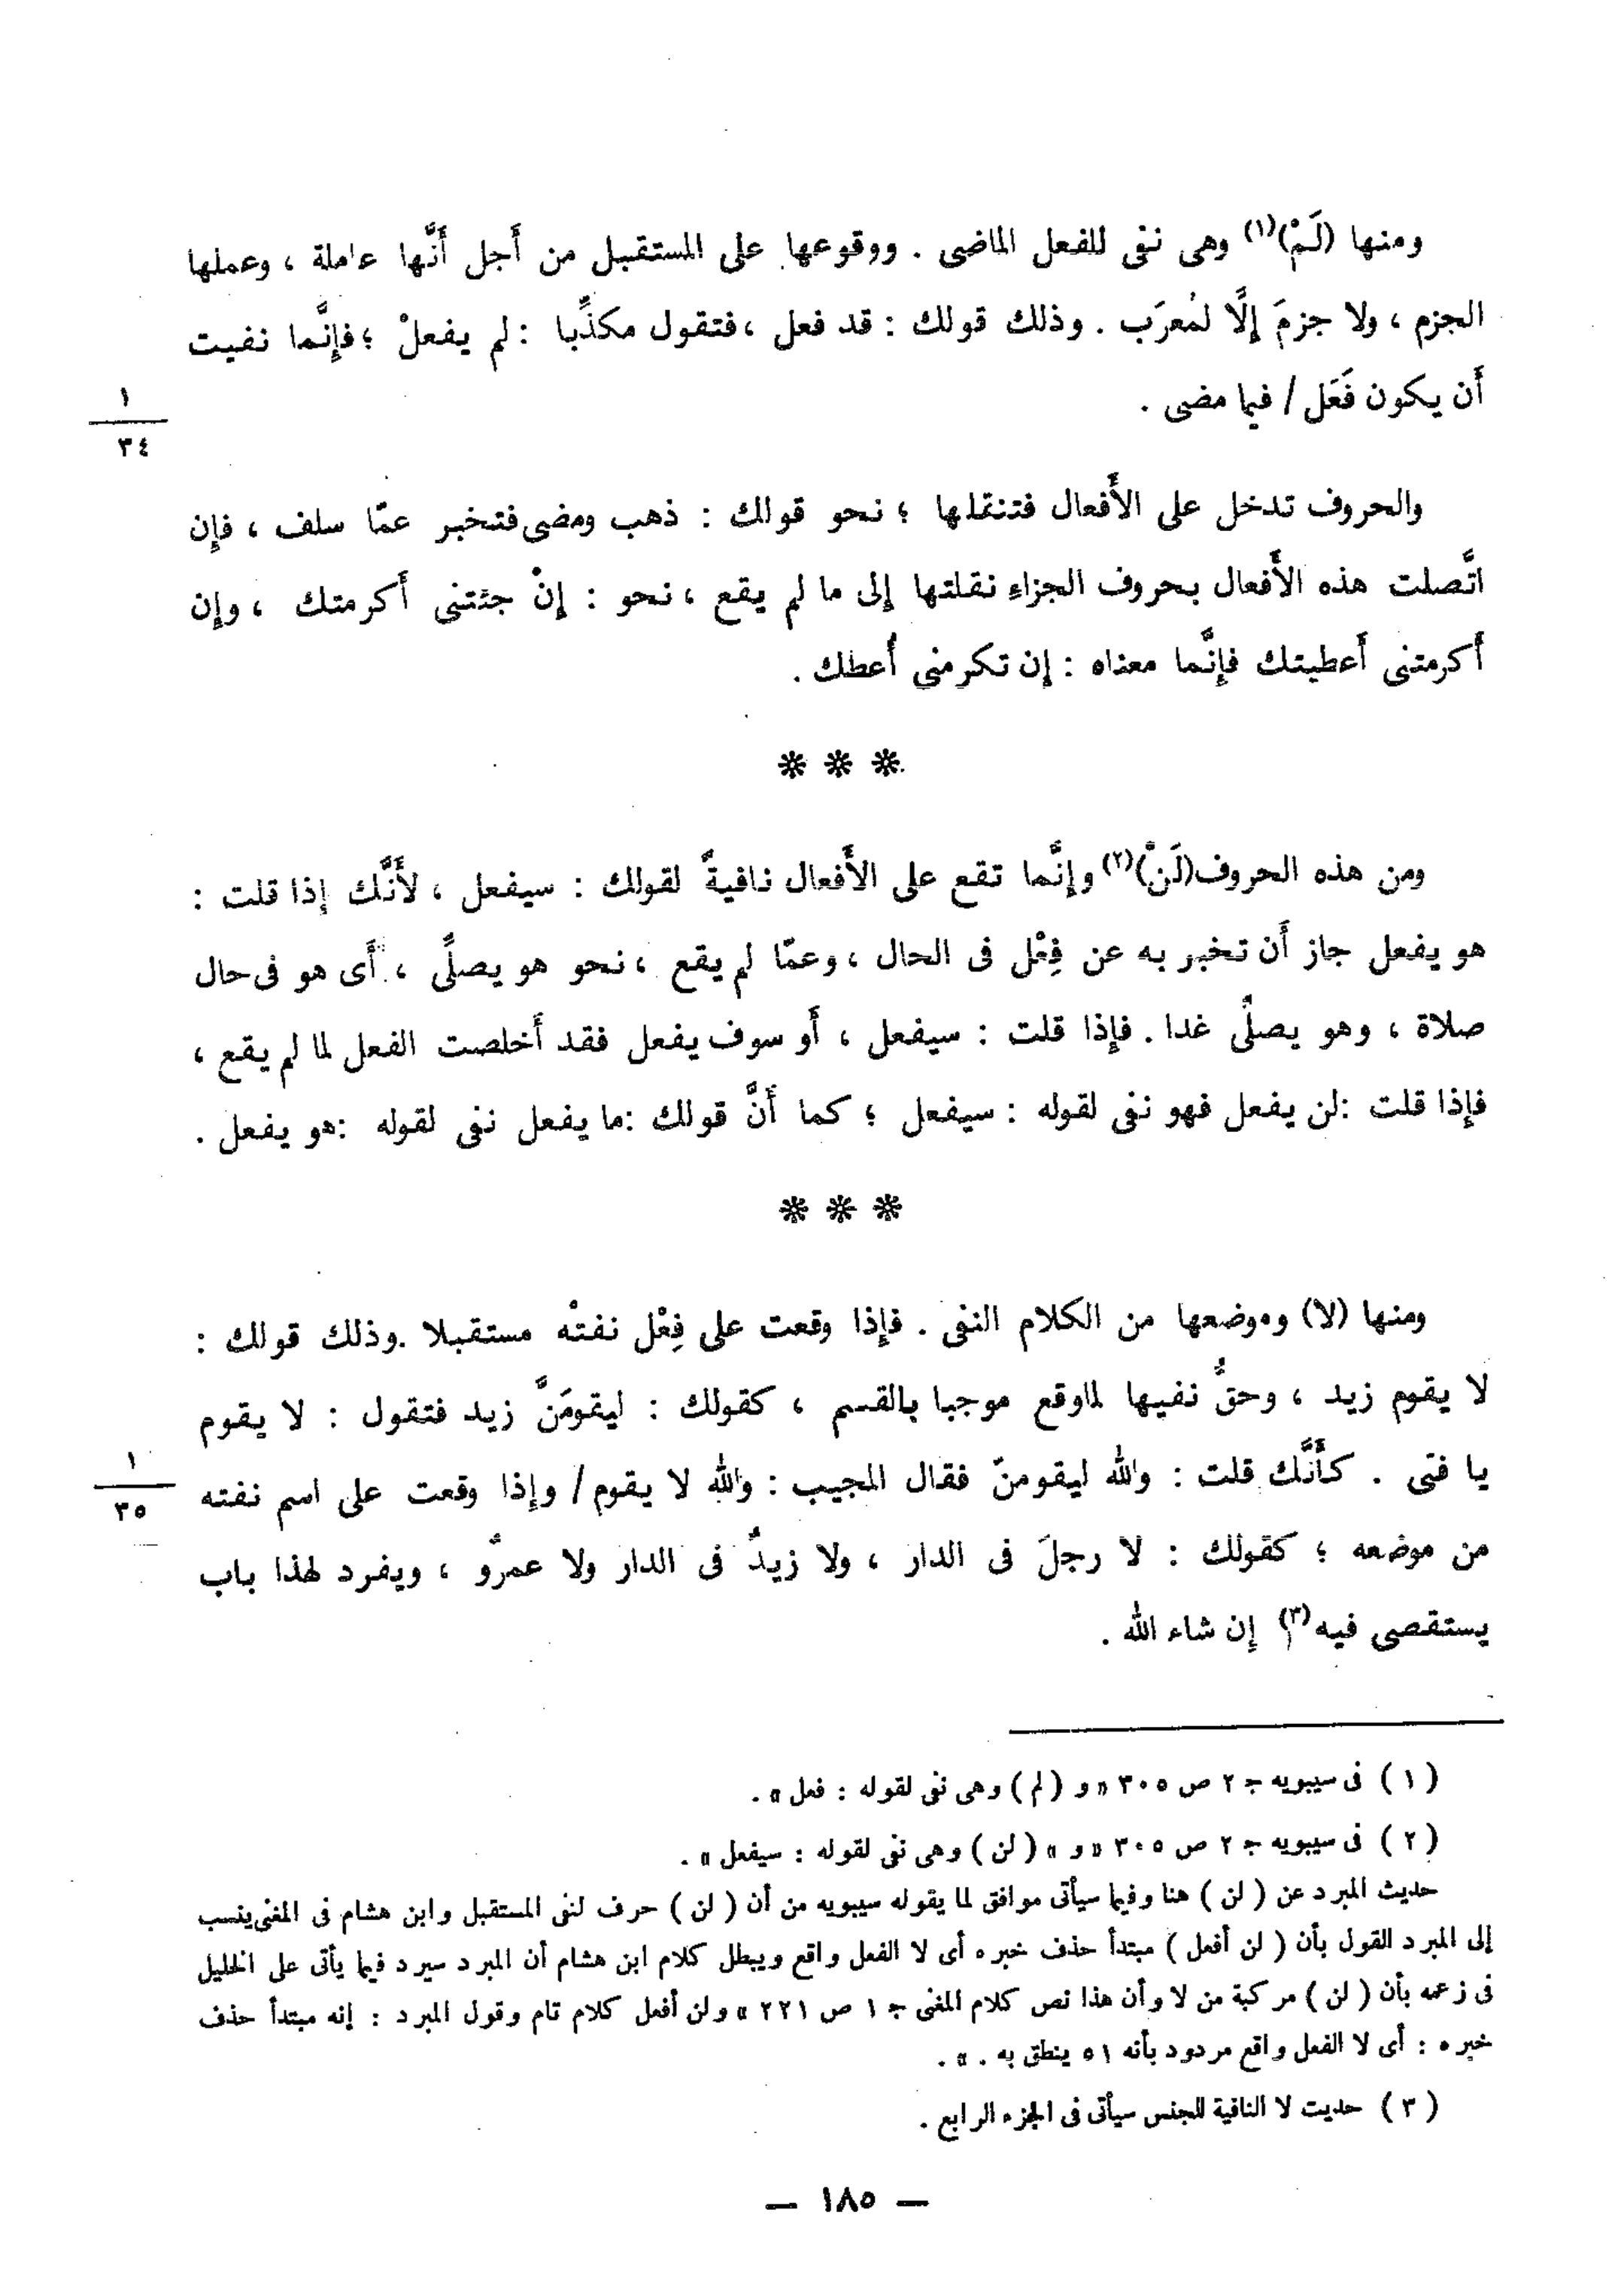 ومنها (لَمْ)(١) وهى نفى للفعل الماضى . ووقوعها على المستقبل من أَجل أَنَّها عاملة ، وعملها
الجزم ، ولا جزمَ إِلَّا لمُعرَب . وذلك قولك : قد فعل ، فتقول مكذِّبا : لم يفعلْ ؛ فإِنَّما نفيت
أَن يكون فَعَل / فيما مضى .
١
٣٤
والحروف تدخل على الأَفعال فتنقلها ؛ نحو قولك : ذهب ومضى فتخبر عمّا سلف ، فإِن
اتَّصلت هذه الأَفعال بحروف الجزاءِ نقلتها إِلى ما لم يقع ، نحو : إِنْ جئتنى أَكرمتك ، وإِن
أَكرمتنى أَعطيتك فإِنَّما معناه : إِن تكرمنى أُعطك .
* * *
ومن هذه الحروف (لَنْ)(٢) وإِنَّما تقع على الأَفعال نافيةً لقولك : سيفعل ، لأَنَّك إِذا قلت :
هو يفعل جاز أَن تخبر به عن فِعْل فى الحال ، وعمّا لم يقع ، نحو هو يصلِّى ، أَى هو فى حال
صلاة ، وهو يصلِّى غدا . فإِذا قلت : سيفعل ، أَو سوف يفعل فقد أَخلصت الفعل لما لم يقع ،
فإِذا قلت : لن يفعل فهو نفى لقوله : سيفعل ؛ كما أَنَّ قولك : ما يفعل نفى لقوله : هو يفعل .
* * *
ومنها (لا) وموضعها من الكلام النفى . فإِذا وقعت على فِعْل نفتْه مستقبلا . وذلك قولك :
لا يقوم زيد ، وحقُّ نفيها لما وقع موجبا بالقسم ، كقولك : ليقومَنَّ زيد فتقول : لا يقوم
يا فتى . كأَنَّك قلت : والله ليقومنّ فقال المجيب : والله لا يقوم / وإِذا وقعت على اسم نفته
١
٣٥
من موضعه ؛ كقولك : لا رجلَ فى الدار ، ولا زيدٌ فى الدار ولا عمرٌو ، ويفرد لهذا باب
يستقصى فيه(٣) إِن شاء الله .
( ١ ) فى سيبويه ج ٢ ص ٣٠٥ « و ( لم ) وهى نفى لقوله : فعل » .
( ٢ ) فى سيبويه ج ٢ ص ٣٠٥ « و » ( لن ) وهى نفى لقوله : سيفعل » .
حديث المبرد عن ( لن ) هنا وفيما سيأتى موافق لما يقوله سيبويه من أن ( لن ) حرف لنفى المستقبل وابن هشام فى المغنى ينسب
إلى المبرد القول بأن ( لن أفعل ) مبتدأ حذف خبره أى لا الفعل واقع ويبطل كلام ابن هشام أن المبرد سيرد فيما يأتى على الخليل
فى زعمه بأن ( لن ) مركبة من لا وأن هذا نص كلام المغنى ج ١ ص ٢٢١ » ولن أفعل كلام تام وقول المبرد : إنه مبتدأ حذف
خبره : أى لا الفعل واقع مردود بأنه ٥١ ينطق به . » .
( ٣ ) حديث لا النافية للجنس سيأتى فى الجزء الرابع .
— ١٨٥ —